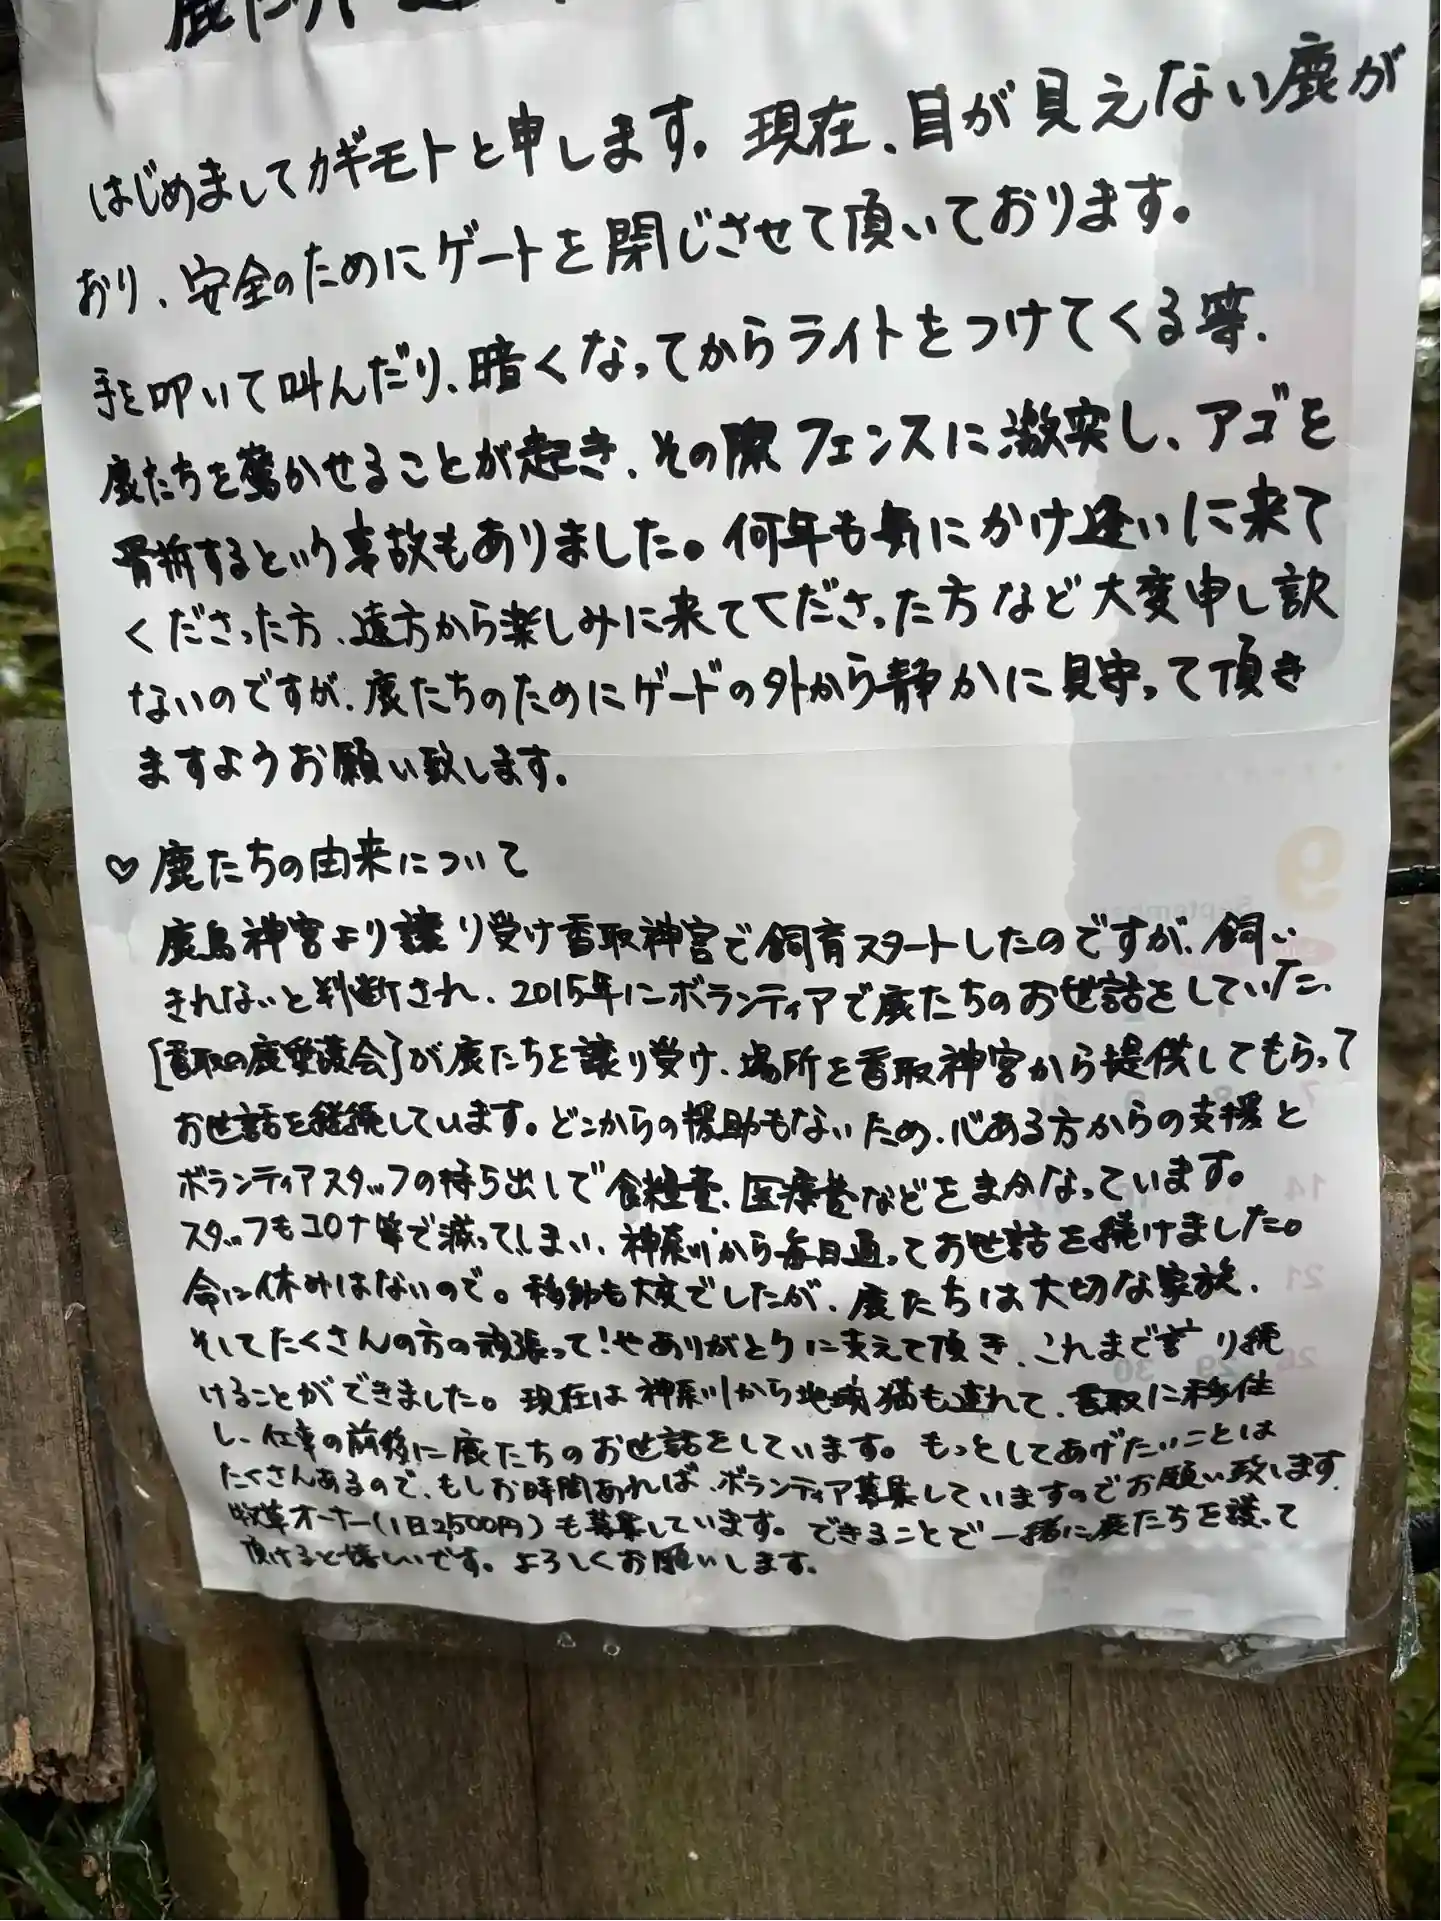 鹿たちに
はじめましてカギモトと申します。現在、目が見えない鹿が
おり、安全のためにゲートを閉じさせて頂いております。
手を叩いて叫んだり、暗くなってからライトをつけてくる等、
鹿たちを驚かせることが起き、その際フェンスに激突し、アゴを
骨折するという事故もありました。何年も気にかけ逢いに来て
くださった方、遠方から楽しみに来てくださった方など大変申し訳
ないのですが、鹿たちのためにゲードの外から静かに見守って頂き
ますようお願い致します。
♡鹿たちの由来について
鹿島神宮より譲り受け香取神宮で飼育スタートしたのですが、飼い
きれないと判断され、2015年にボランティアで鹿たちのお世話をしていた、
[香取の鹿愛護会]が鹿たちを譲り受け、場所を香取神宮から提供してもらって
お世話を継続しています。どこからの援助もないため、心ある方からの支援と
ボランティアスタッフの持ち出しで食糧費、医療費などをまかなっています。
スタッフもコロナ等で減ってしまい、神奈川から毎日通ってお世話を続けました。
命に休みはないので。移動も大変でしたが、鹿たちは大切な家族、
そしてたくさんの方の頑張って!やありがとうに支えて頂き、これまで守り続
けることができました。現在は神奈川から地域猫も連れて、香取に移住
し、仕事の前後に鹿たちのお世話をしています。もっとしてあげたいことは
たくさんあるので、もしお時間あれば、ボランティア募集していますのでお願い致します。
牧草オーナー(1日2500円)も募集しています。できることで一緒に鹿たちを護って
頂けると嬉しいです。よろしくお願いします。
9
September
7
14
21
28
29
30